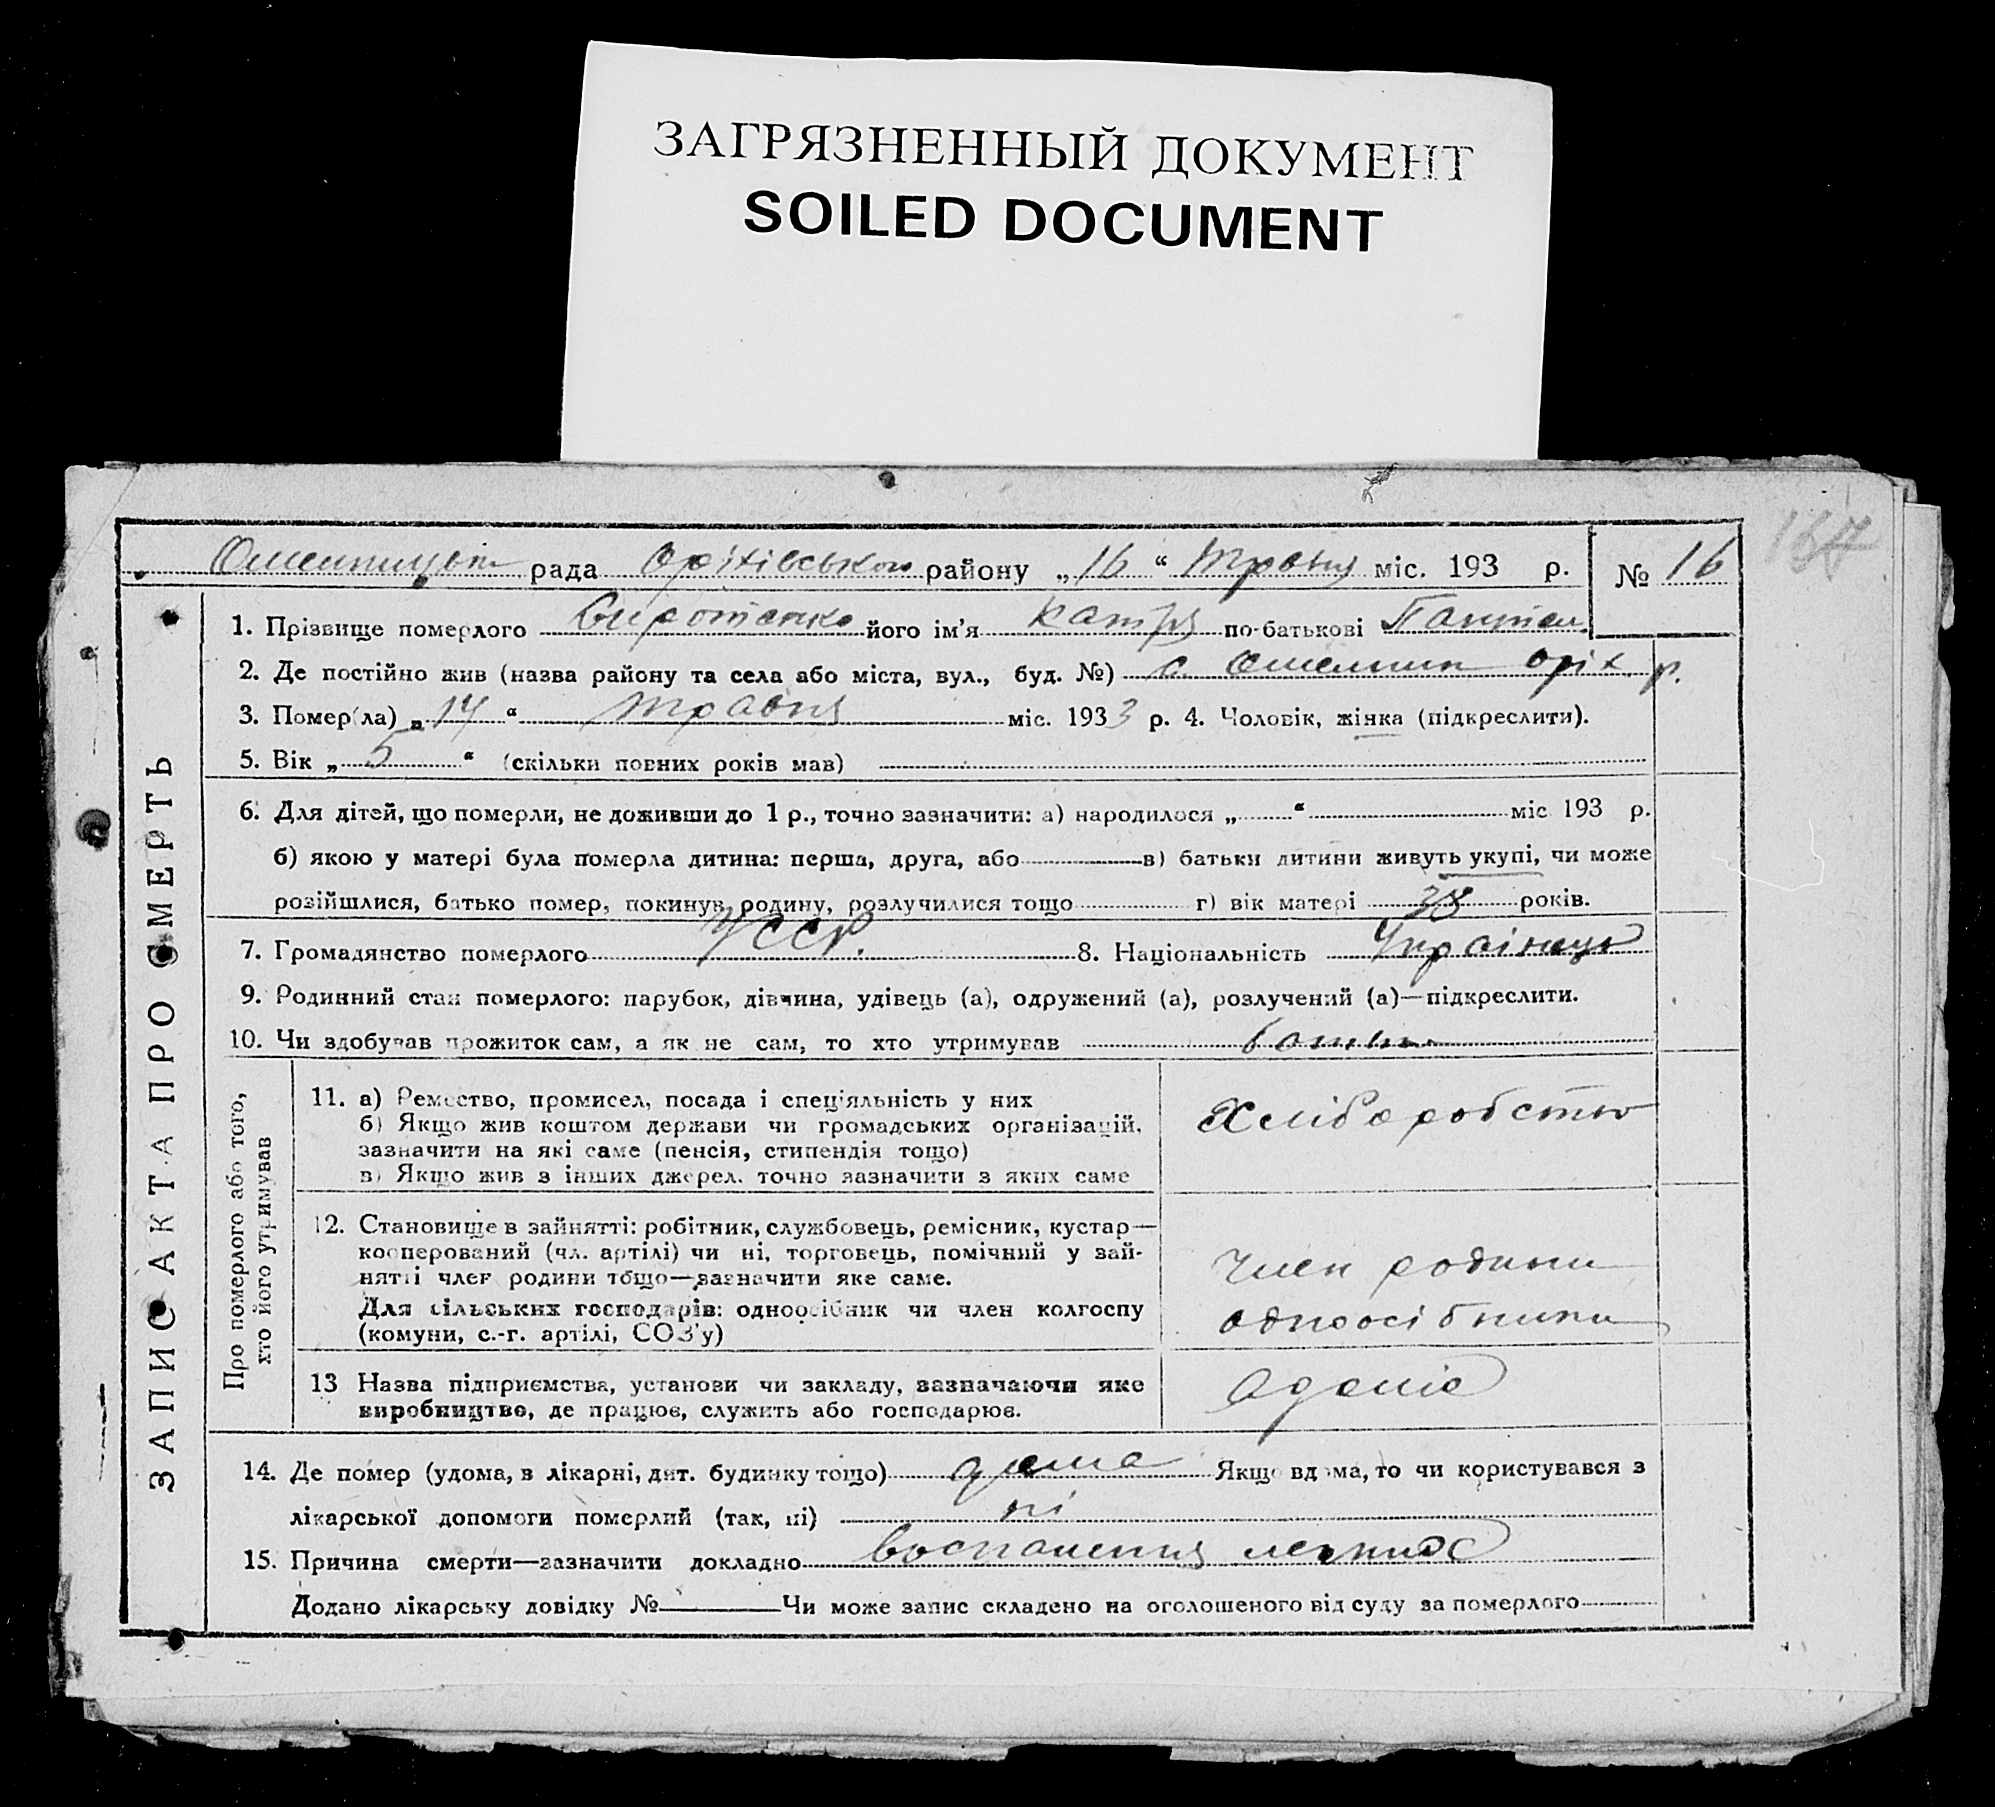 ЗАГРЯЗНЕННЫЙ ДОКУМЕНТ
SOILED DOCUMENT
167
рада Оріхівського району „16“ Травня міс. 193 р. № 16
ЗАПИС АКТА ПРО СМЕРТЬ
1. Прізвище померлого Сиротенко його ім'я Катря по-батькові Пантел
2. Де постійно жив (назва району та села або міста, вул., буд. №) с. Омельник Оріх р.
3. Помер(ла) „14“ Травня міс. 1933 р. 4. Чоловік, жінка (підкреслити).
5. Вік „5“ (скільки повних років мав)
6. Для дітей, що померли, не доживши до 1 р., точно зазначити: а) народилося „ “ міс 193 р.
б) якою у матері була померла дитина: перша, друга, або в) батьки дитини живуть укупі, чи може
розійшлися, батько помер, покинув родину, розлучилися тощо г) вік матері 38 років.
7. Громадянство померлого УССР. 8. Національність Українець
9. Родинний стан померлого: парубок, дівчина, удівець (а), одружений (а), розлучений (а)—підкреслити.
10. Чи здобував прожиток сам, а як не сам, то хто утримував
Про померлого або того,
хто його утримував
11. а) Ремество, промисел, посада і спеціяльність у них
б) Якщо жив коштом держави чи громадських організацій,
зазначити на які саме (пенсія, стипендія тощо)
в) Якщо жив з інших джерел, точно зазначити з яких саме
Хліборобство
12. Становище в зайнятті: робітник, службовець, ремісник, кустар—
кооперований (чл. артілі) чи ні, торговець, помічний у зай-
нятті член родини тощо—зазначити яке саме.
Для сільських господарів: одноосібник чи член колгоспу
(комуни, с.-г. артілі, СОЗ'у)
Член родини
одноосібника
13 Назва підприємства, установи чи закладу, зазначаючи яке
виробництво, де працює, служить або господарює.
14. Де помер (удома, в лікарні, дит. будинку тощо) дома Якщо вдома, то чи користувався з
лікарської допомоги померлий (так, ні) ні
15. Причина смерти—зазначити докладно воспаления легких
Додано лікарську довідку № Чи може запис складено на оголошеного від суду за померлого